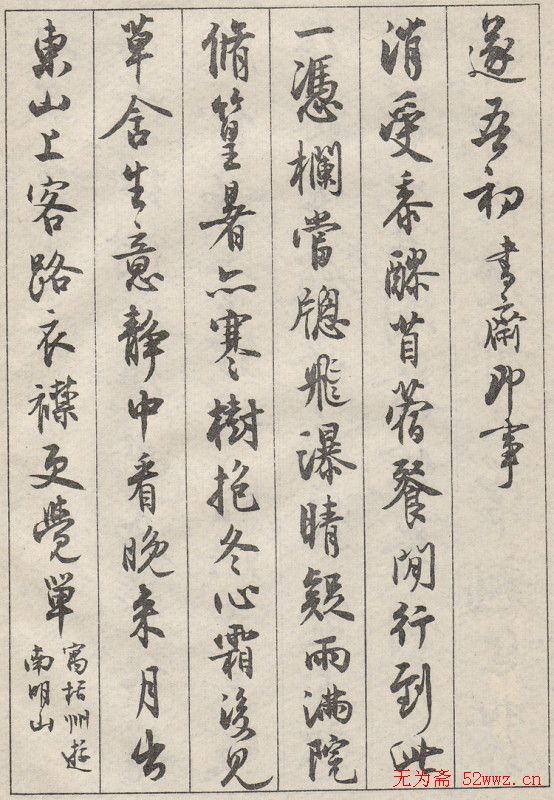 遂吾初 書齋即事
消受黍醪苜蓿餐閒行到此
一憑欄當牕飛瀑晴疑雨滿院
脩篁暑亦寒樹抱冬心霜後見
草含生意靜中看晚來月出
東山上客路衣襟更覺單
寓括州遊
南明山
无为斋 52wwz.cn